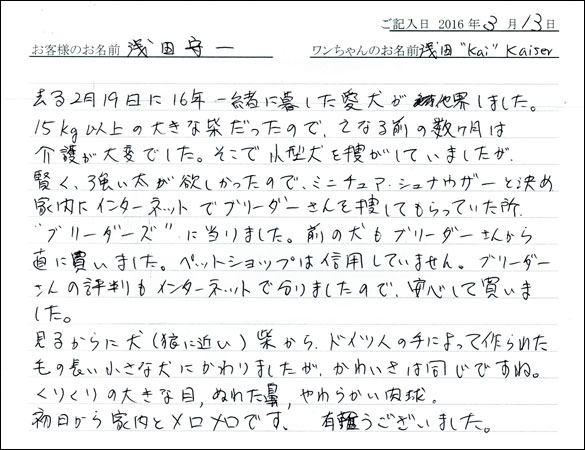 ご記入日 2016年3月13日
お客様のお名前 浅田守一 ワンちゃんのお名前 浅田"Kai" Kaiser
去る2月19日に16年一緒に暮した愛犬が他界しました。
15kg以上の大きな柴だったので、亡なる前の数ヶ月は
介護が大変でした。そこで小型犬を捜がしていましたが、
賢く、強い犬が欲しかったので、ミニチュア・シュナウザーと決め
家内にインターネットでブリーダーさんを捜してもらっていた所、
"ブリーダーズ"に当りました。前の犬もブリーダーさんから
直に買いました。ペットショップは信用していません。ブリーダー
さんの評判もインターネットで分りましたので、安心して買いま
した。
見るからに犬(狼に近い)柴から、ドイツ人の手によって作られた
毛の長い小さな犬にかわりましたが、かわいさは同じですね。
くりくりの大きな目,ぬれた鼻,やわらかい肉球。
初日から家内とメロメロです、 有難うございました。